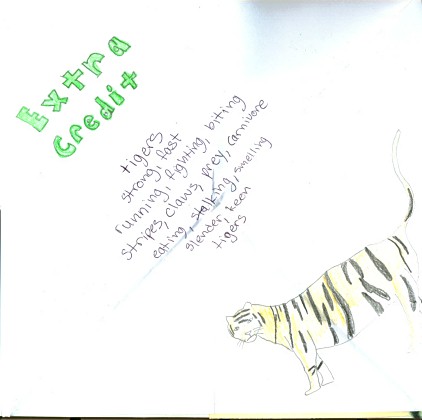 Extra
Credit
tigers
strong, fast
running, fighting, biting
stripes, claws, prey, carnivore
eating, stalking, smelling
slender, keen
tigers